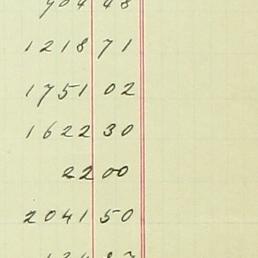 904 48
1218 71
1751 02
1622 30
22 00
2041 50